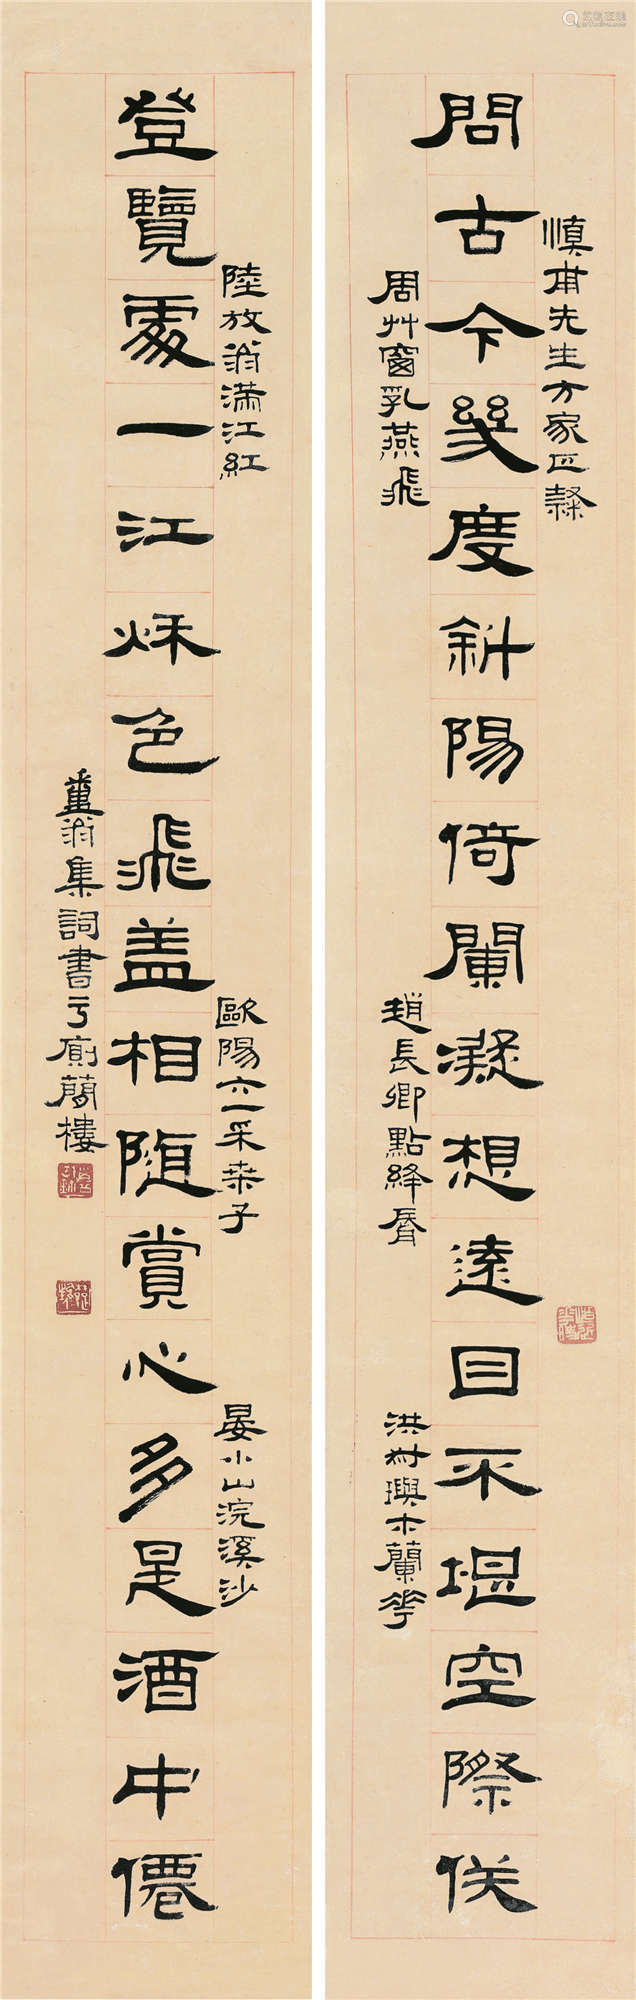 慎甫先生方家正隸
問古今幾度斜陽倚闌凝想遠目不堪空際送
周艸窗乳燕飛
趙長卿點絳脣
洪叔璵木蘭花
陸放翁滿江紅
歐陽六一采桑子
晏小山浣溪沙
登覽處一江秌色飛盖相隨賞心多是酒中僊
糞翁集詞書亏廁簡樓